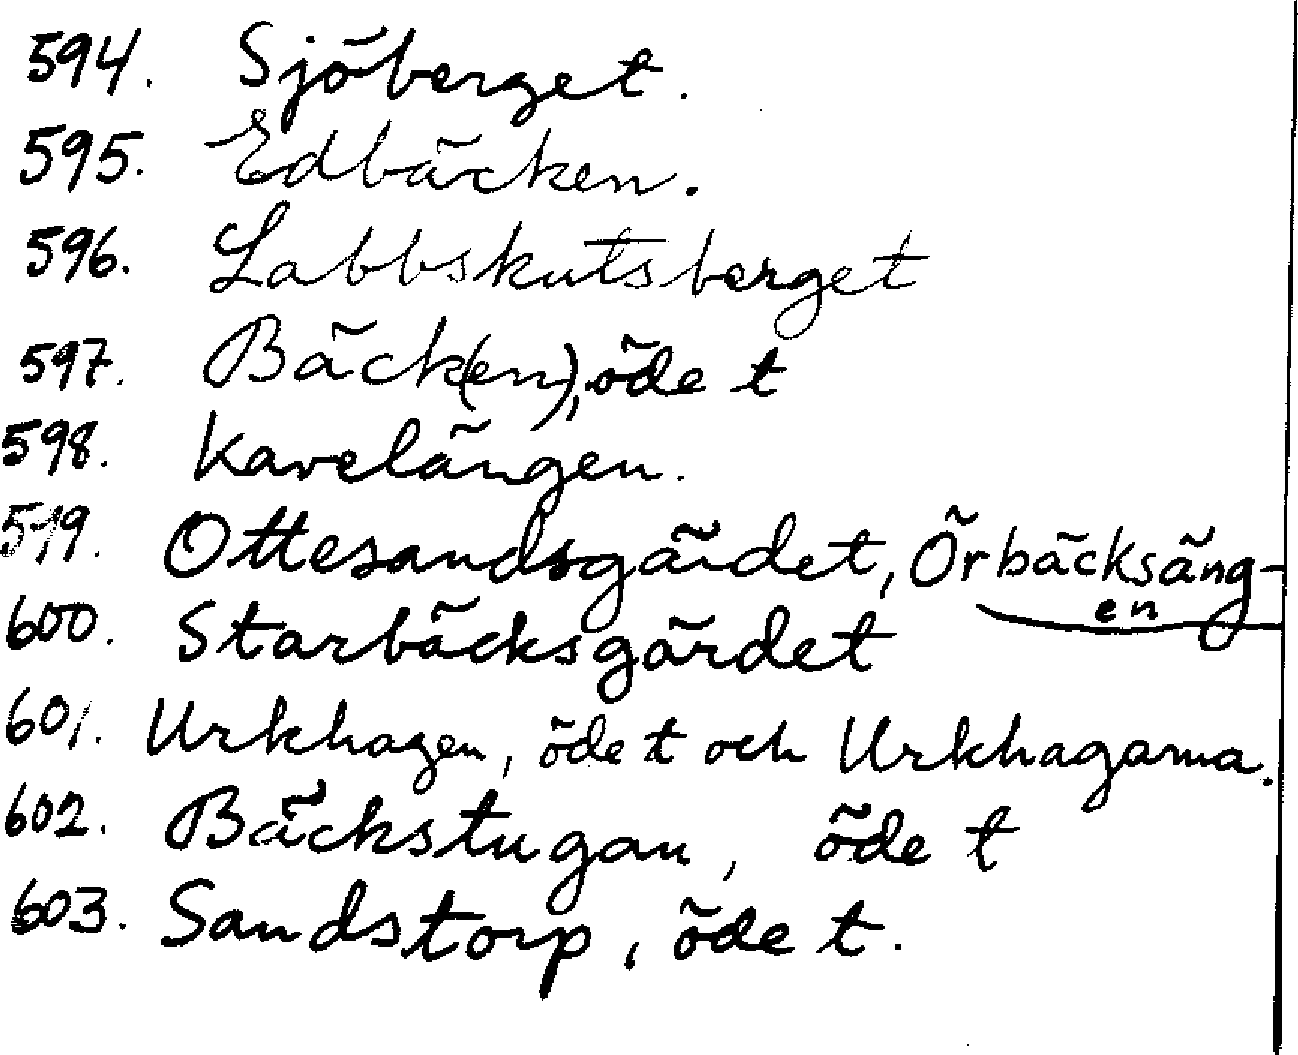 594. Sjöberget.
595. Edbäcken.
596. Labbskutsberget
597. Bäck(en), öde t
598. Kavelängen.
599. Ottesandsgärdet, Örbäcksäng-
en
600. Starbäcksgärdet
601. Urkhagen, öde t och Urkhagarna.
602. Bäckstugan, öde t
603. Sandstorp, öde t.